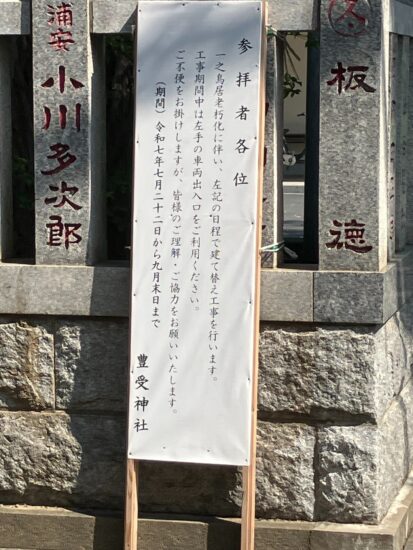 参拝者各位
一之鳥居老朽化に伴い、左記の日程で建て替え工事を行います。
工事期間中は左手の車両出入口をご利用ください。
ご不便をお掛けしますが、皆様のご理解・ご協力をお願いいたします。
(期間)令和七年七月二十二日から九月末日まで
豊受神社
板徳
浦安 小川多次郎